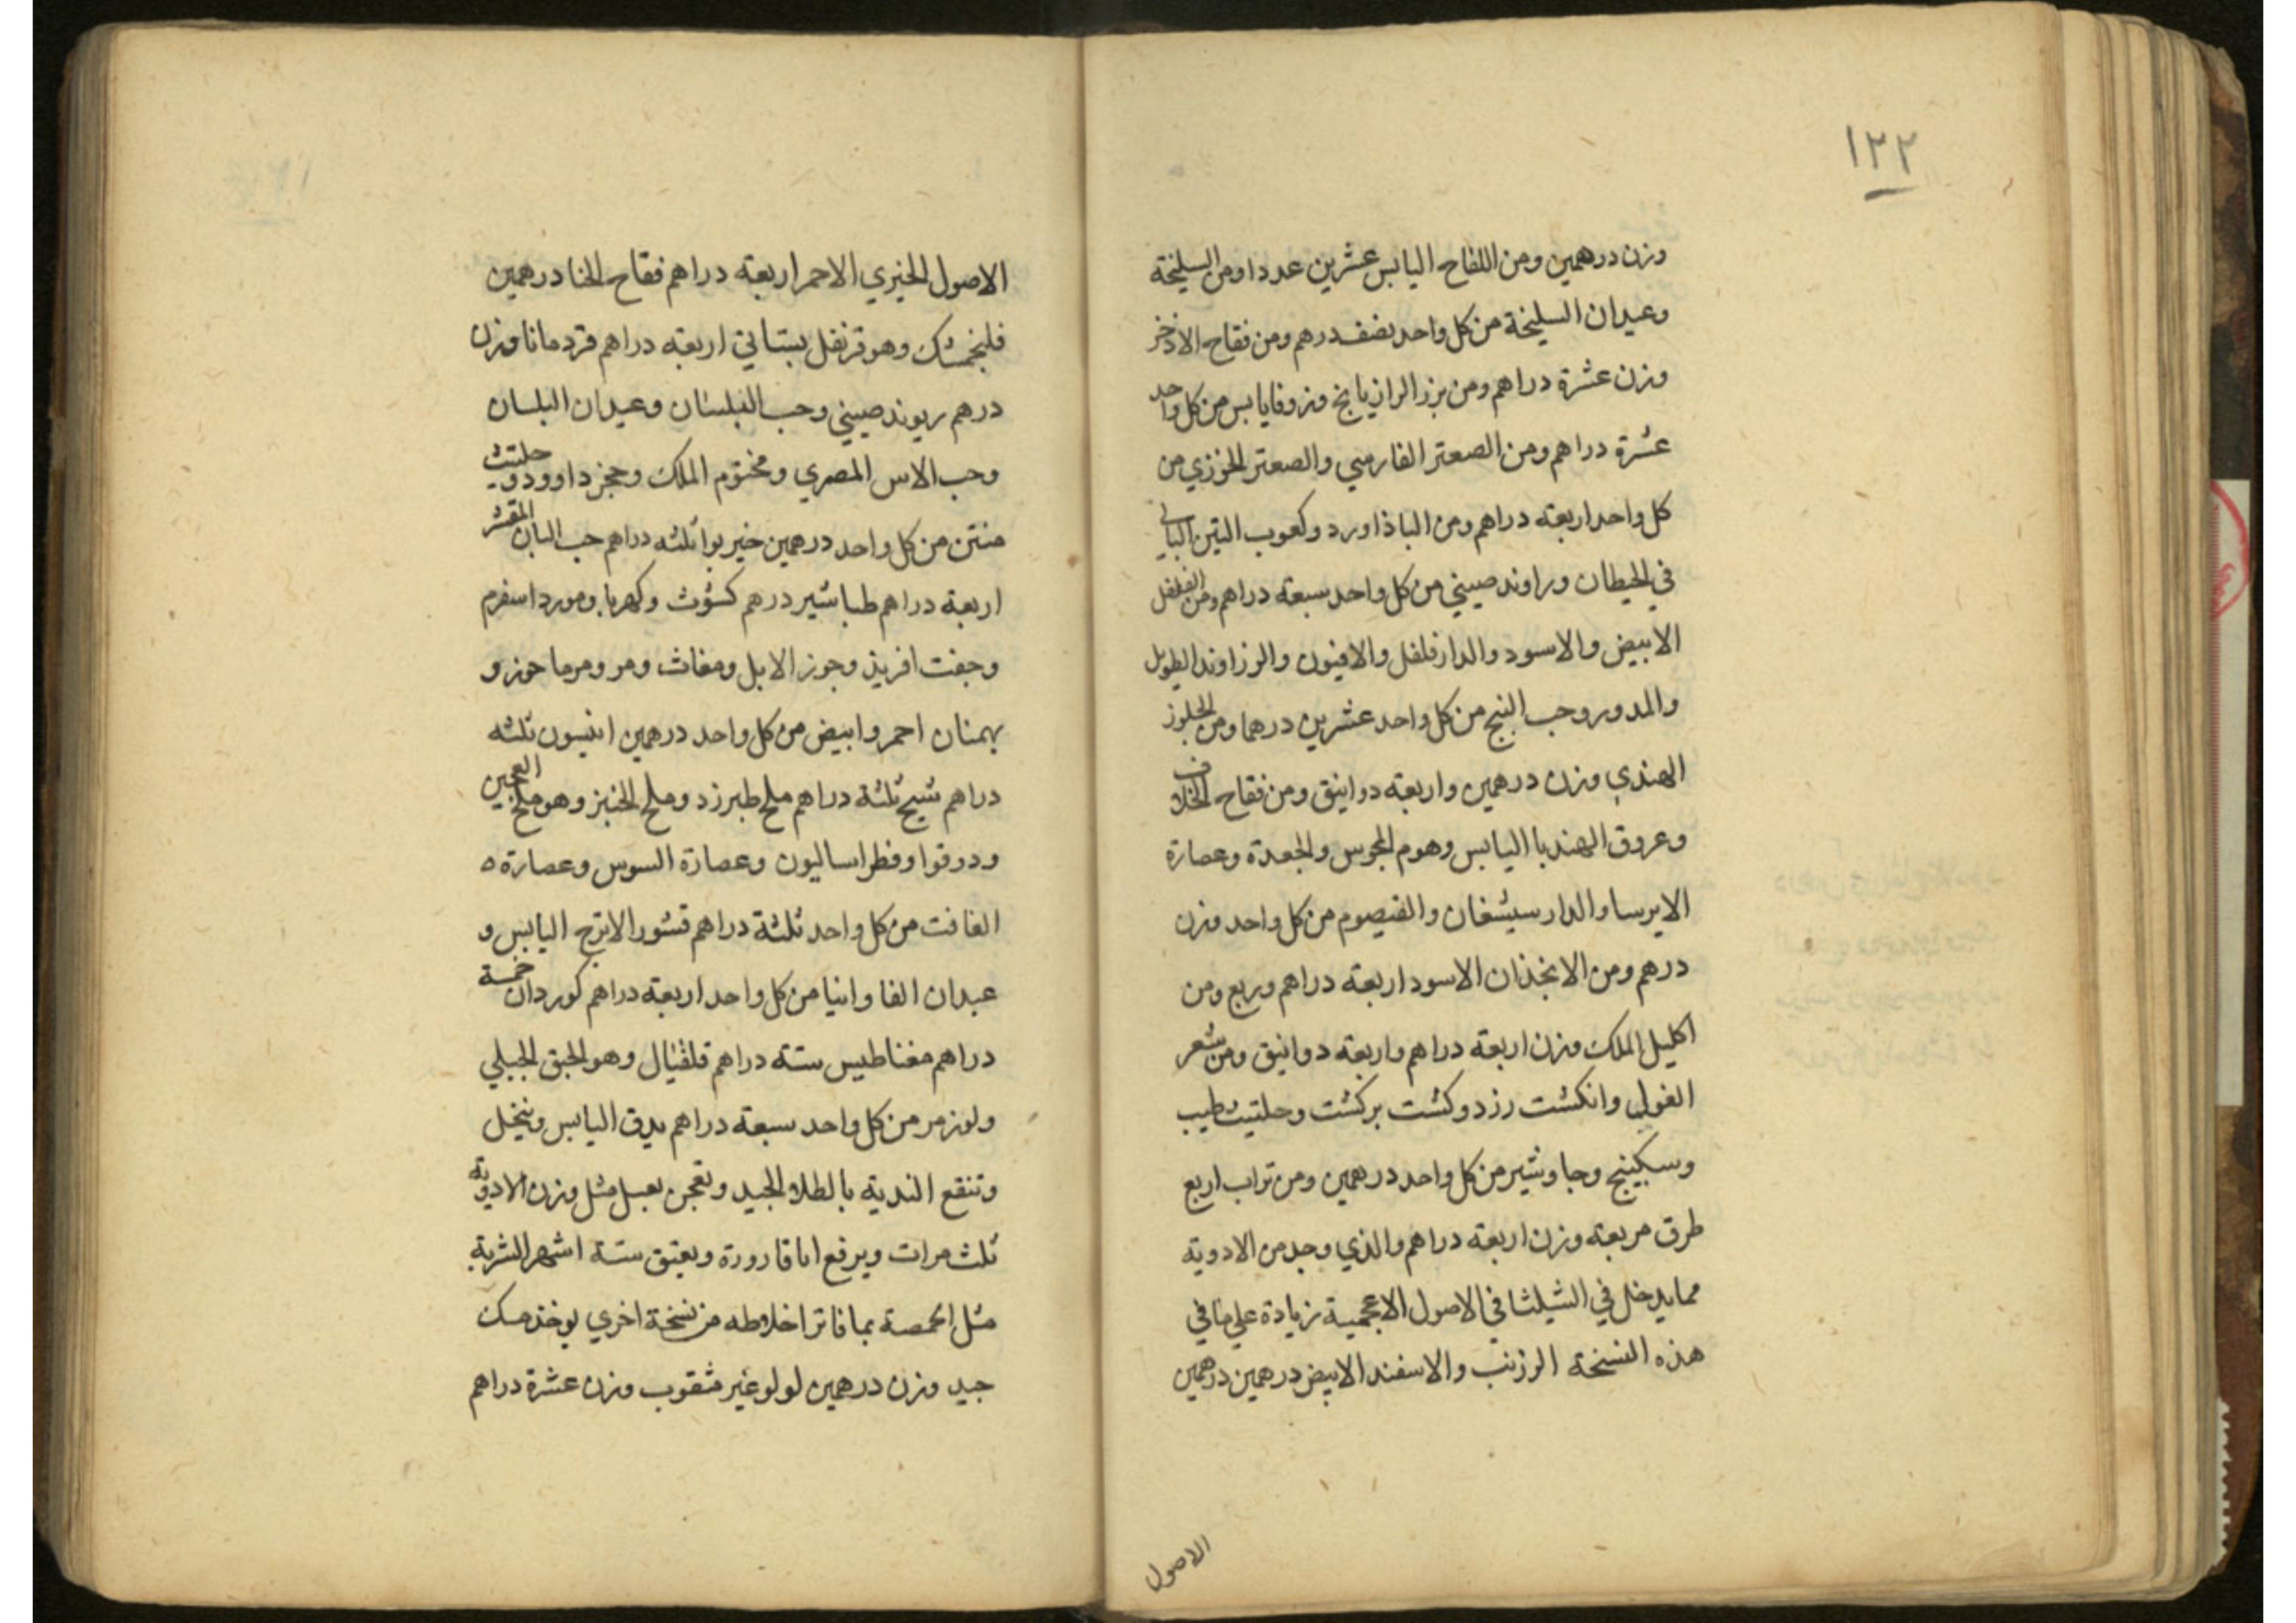 ١٢٢
وزن درهمين ومن اللفاح اليابس عشرين عددا ومن السليخة
وعيدان السليخة من كل واحد نصف درهم ومن فقاح الاذخر
وزن عشرة دراهم ومن بزر الرازيانج وزوفا يابس من كل واحد
عشرة دراهم ومن الصعتر الفارسي والصعتر الخوزي من
كل واحد اربعة دراهم ومن الباذاورد وكعوب التين البالي
في الحيطان وراوند صيني من كل واحد سبعة دراهم ومن الفلفل
الابيض والاسود والدارفلفل والافيون والرزاوند الطويل
والمدور وحب البنج من كل واحد عشرين درهما ومن الجلوز
الهندي وزن درهمين واربعة دوانيق ومن فقاح الخلاف
وعروق الهندبا اليابس وهوم المجوس والجعدة وعصارة
الايرسا والدارسيشغان والقيصوم من كل واحد وزن
درهم ومن الانجذان الاسود اربعة دراهم وربع ومن
اكليل الملك وزن اربعة دراهم واربعة دوانيق ومن شعر
الغول وانكشت رزد وكشت بركشت وحلتيت طيب
وسكبينج وجاوشير من كل واحد درهمين ومن تراب اربع
طرق مربعة وزن اربعة دراهم والذي وجد من الادوية
مما يدخل في الشيلثا في الاصول الاعجمية زيادة علي ما في
هذه النسخة الرزنب والاسفند الابيض درهمين درهمين
الاصول
الاصول الخيري الاحمر اربعة دراهم فقاح الحنا درهمين
فلنجمشك وهو قرنفل بستاني اربعة دراهم قردمانا وزن
درهم ريوند صيني وحب البلسان وعيدان البلسان
وحب الاس المصري ومختوم الملك وحجر داوودي حلتيت
منتن من كل واحد درهمين خير بوا ثلثه دراهم حب البان المقشر
اربعة دراهم طباشير درهم كشوث وكهربا ومورد اسفرم
وجفت افريد وجوز الابل ومغاث ومر ومرماحوز و
بهمنان احمر وابيض من كل واحد درهمين انيسون ثلثه
دراهم شيح ثلثة دراهم ملح طبرزد وملح الخبز وهو ملح العجين
ودوقوا وفطراساليون وعصارة السوس وعصارة ه
الغافت من كل واحد ثلثة دراهم قشور الاترج اليابس و
عيدان الفاوانيا من كل واحد اربعة دراهم كوردان خمسة
دراهم مغناطيس ستة دراهم قلفيال وهو الحبق الجبلي
ولوز مر من كل واحد سبعة دراهم يدق اليابس وينخل
وتنقع الندية بالطلا الجيد وتعجن بعسل مثل وزن الادوية
ثلث مرات ويرفع انا قارورة ويعتق ستة اشهر الشربة
مثل الحمصة بما فاتر اخلاطه من نسخة اخري يوخذ مسك
جيد وزن درهمين لولو غير مثقوب وزن عشرة دراهم